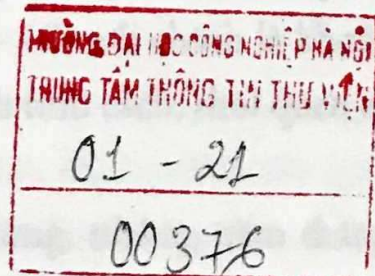 TRƯỜNG ĐẠI HỌC CÔNG NGHIỆP HÀ NỘI
TRUNG TÂM THÔNG TIN THƯ VIỆN
01 - 21
00376